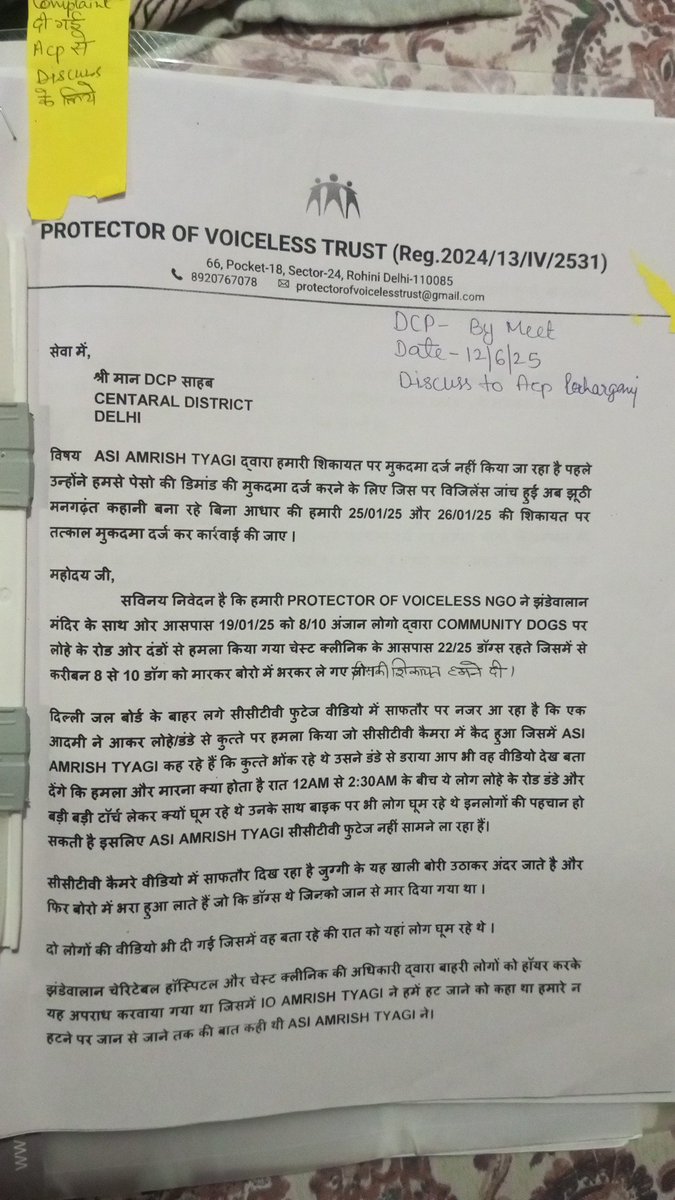 Complaint
दी गई
Acp से
Discuss
के लिये
PROTECTOR OF VOICELESS TRUST (Reg.2024/13/IV/2531)
66, Pocket-18, Sector-24, Rohini Delhi-110085
8920767078 protectorofvoicelesstrust@gmail.com
DCP- By Meet
Date-12/6/25
Discuss to Acp
सेवा में,
श्री मान DCP साहब
CENTARAL DISTRICT
DELHI
विषय ASI AMRISH TYAGI द्वारा हमारी शिकायत पर मुकदमा दर्ज नहीं किया जा रहा है पहले
उन्होंने हमसे पेसो की डिमांड की मुकदमा दर्ज करने के लिए जिस पर विजिलेंस जांच हुई अब झूठी
मनगढ़ंत कहानी बना रहे बिना आधार की हमारी 25/01/25 और 26/01/25 की शिकायत पर
तत्काल मुकदमा दर्ज कर कार्रवाई की जाए ।
महोदय जी,
सविनय निवेदन है कि हमारी PROTECTOR OF VOICELESS NGO ने झंडेवालान
मंदिर के साथ ओर आसपास 19/01/25 को 8/10 अंजान लोगो द्वारा COMMUNITY DOGS पर
लोहे के रोड ओर दंडों से हमला किया गया चेस्ट क्लीनिक के आसपास 22/25 डॉग्स रहते जिसमें से
करीबन 8 से 10 डॉग को मारकर बोरो में भरकर ले गए जीसकी शिकायत हमने दी।
दिल्ली जल बोर्ड के बाहर लगे सीसीटीवी फुटेज वीडियो में साफतौर पर नजर आ रहा है कि एक
आदमी ने आकर लोहे/डंडे से कुत्ते पर हमला किया जो सीसीटीवी कैमरा में कैद हुआ जिसमें ASI
AMRISH TYAGI कह रहे हैं कि कुत्ते भोंक रहे थे उसने डंडे से डराया आप भी वह वीडियो देख बता
देंगे कि हमला और मारना क्या होता है रात 12AM से 2:30AM के बीच ये लोग लोहे के रोड डंडे और
बड़ी बड़ी टॉर्च लेकर क्यों घूम रहे थे उनके साथ बाइक पर भी लोग घूम रहे थे इनलोगों की पहचान हो
सकती है इसलिए ASI AMRISH TYAGI सीसीटीवी फुटेज नहीं सामने ला रहा हैं।
सीसीटीवी कैमरे वीडियो में साफतौर दिख रहा है जुग्गी के यह खाली बोरी उठाकर अंदर जाते है और
फिर बोरो में भरा हुआ लाते हैं जो कि डॉग्स थे जिनको जान से मार दिया गया था ।
दो लोगों की वीडियो भी दी गई जिसमें वह बता रहे की रात को यहां लोग घूम रहे थे ।
झंडेवालान चेरिटेबल हॉस्पिटल और चेस्ट क्लीनिक की अधिकारी द्वारा बाहरी लोगों को हॉयर करके
यह अपराध करवाया गया था जिसमें IO AMRISH TYAGI ने हमें हट जाने को कहा था हमारे न
हटने पर जान से जाने तक की बात कही थी ASI AMRISH TYAGI ने।